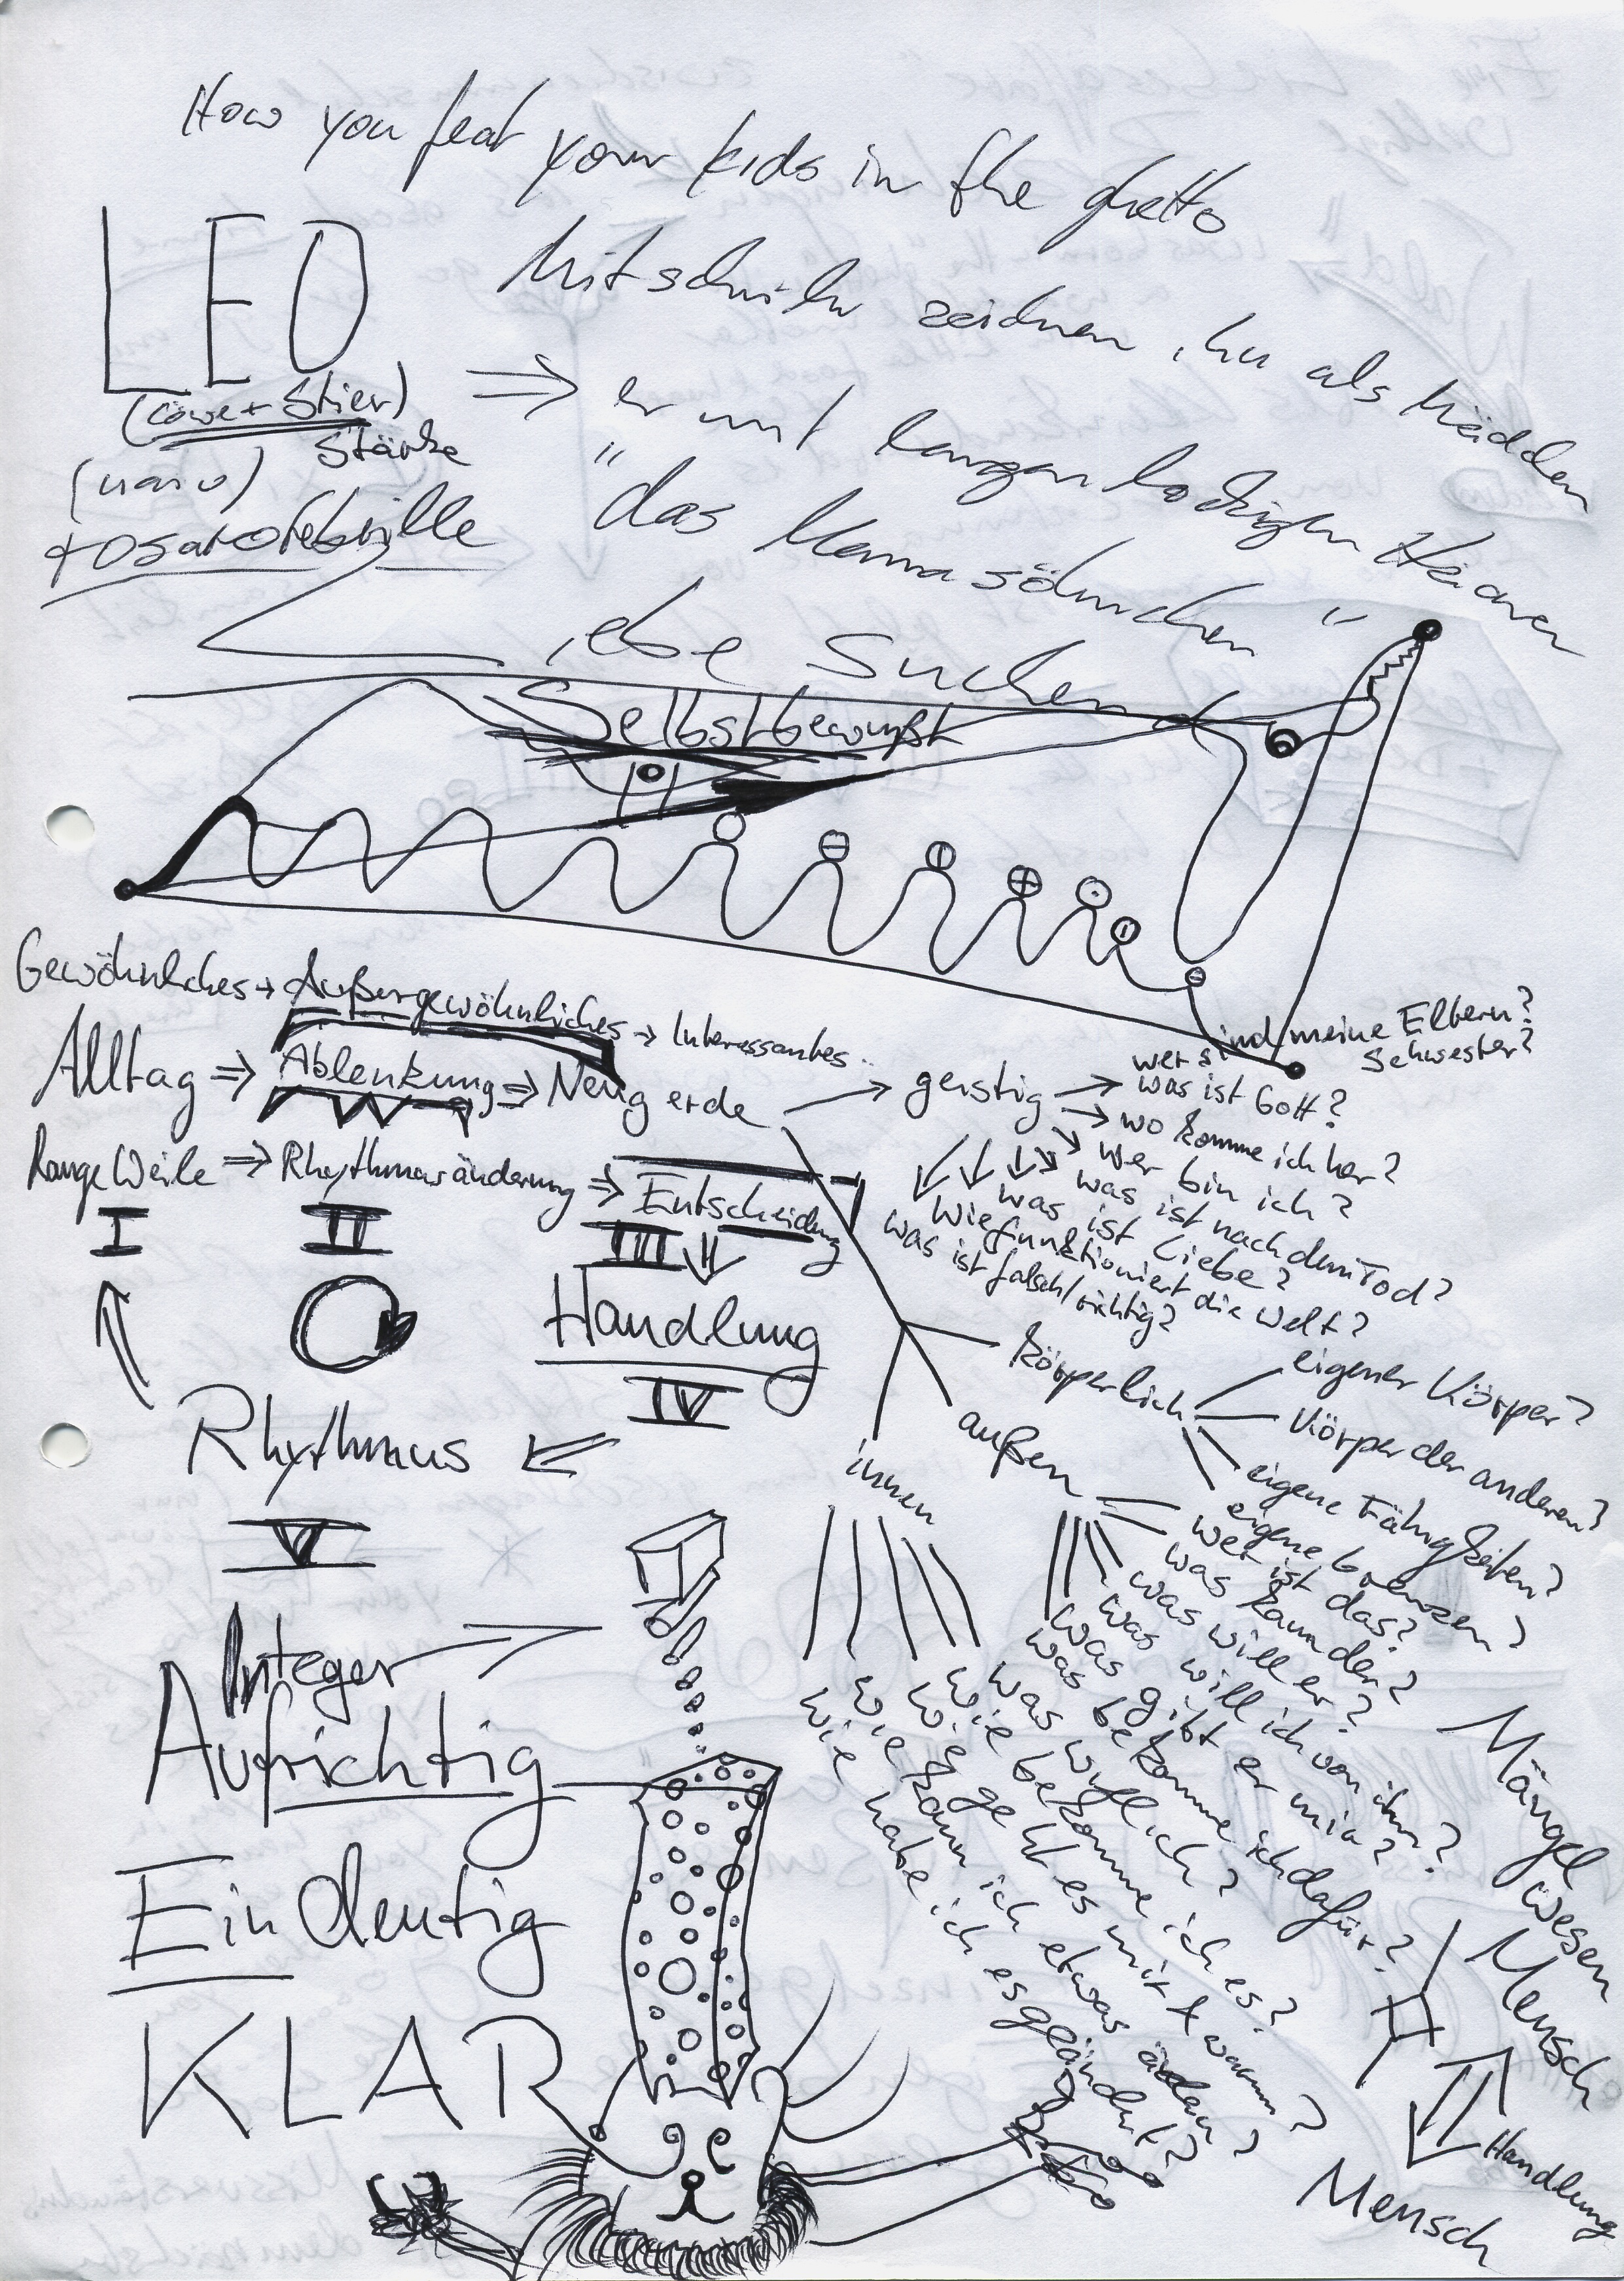 How you feat your kids in the ghetto
LEO
(Löwe + Stier)
Stärke
(naiv)
rosarotebrille
Mitschüler zeichnen ihn als Mädchen
⇒ er mit langen lockigen Haaren
"das Mamasöhnchen"
Liebe Suchend
Selbstbewußt
Gewöhnliches → Außergewöhnliches → Interessantes..
Alltag ⇒ Ablenkung ⇒ Neugierde → geistig →
LangeWeile ⇒ Rhythmusänderung ⇒ Entscheidung
I II III
Handlung
IV
Rhythmus
V
wer sind meine Eltern?
Schwester?
was ist Gott?
wo komme ich her?
wer bin ich?
was ist nach dem Tod?
was ist Liebe?
Wie funktioniert die Welt?
was ist falsch/richtig?
körperlich
eigener Körper?
Körper der anderen?
eigene Fähigkeiten?
eigene Grenzen?
außen
wer ist das?
was kann der?
was will er?
was will ich von ihm?
was gibt er mir?
was bekomme ich dafür?
innen
was will ich?
wie bekomme ich es?
wie geht es mir & warum?
wie kann ich etwas ändern?
wie habe ich es geändert?
Integer
Aufrichtig
Eindeutig
KLAR
Mängel wesen
Mensch
Handlung
Mensch